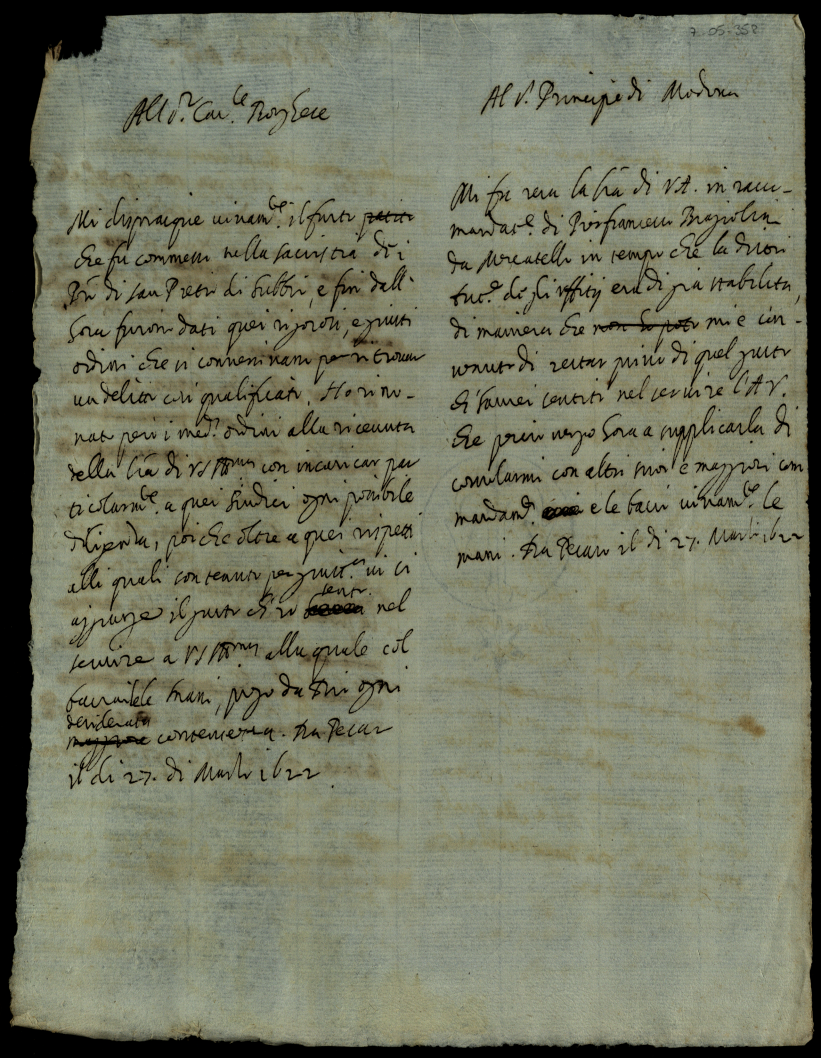 7-05-358
All S.r Car.le Borghese
Mi dispiacque vivam.te il furto
che fu commesso nella sacristia dei
PP. di san Pietro di Gubbio, e fin dall'
hora furon dati quei rigorosi, e giusti
ordini che si convenivano per ritrovar
un delitto così qualificato. Ho rino-
nati però i med.i ordini alla ricevuta
della l'ra di VS Ill.ma con incaricar par
ticolarm.te a quei Giudici ogni possibile
diligenza, poiche oltre a quei rispetti
alli quali son tenuto per giust.a vi si
aggiunge il gusto ch'io sento nel
servire a VS Ill.ma alla quale col
baciarle le mani, prego da Dio ogni
desiderata
maggiore contentezza. Da Pesaro
il di 27. di Marzo 1622
Al S.r Principe di Modona
Mi fu resa la l'ra di V.A. in racco-
mandat.e di Pierfrancesco Braziolini
da Mercatello in tempo che la distri
but.e de gli uffitij era di già stabilita,
di maniera che non ho potuto mi è con-
venuto di restar privo di quel gusto
ch'haverei sentito nel servire l'A.V.
che però vengo hora a supplicarla di
consolarmi con altri suoi e maggiori com
mandam.ti e le bacio vivam.te le
mani. Da Pesaro il di 27. Marzo 1622